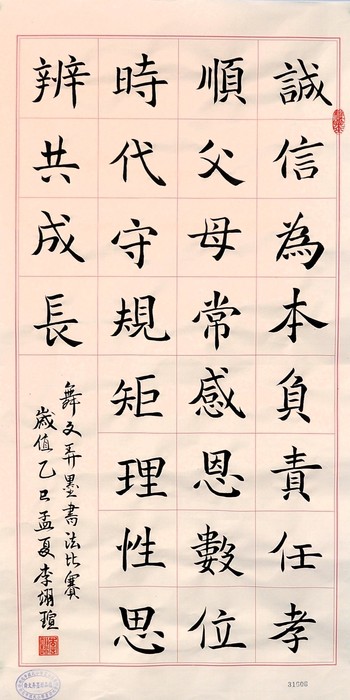 誠信為本負責任孝
順父母常感恩數位
時代守規矩理性思
辨共成長
舞文弄墨書法比賽
歲值乙巳孟夏李翊瑄
31908